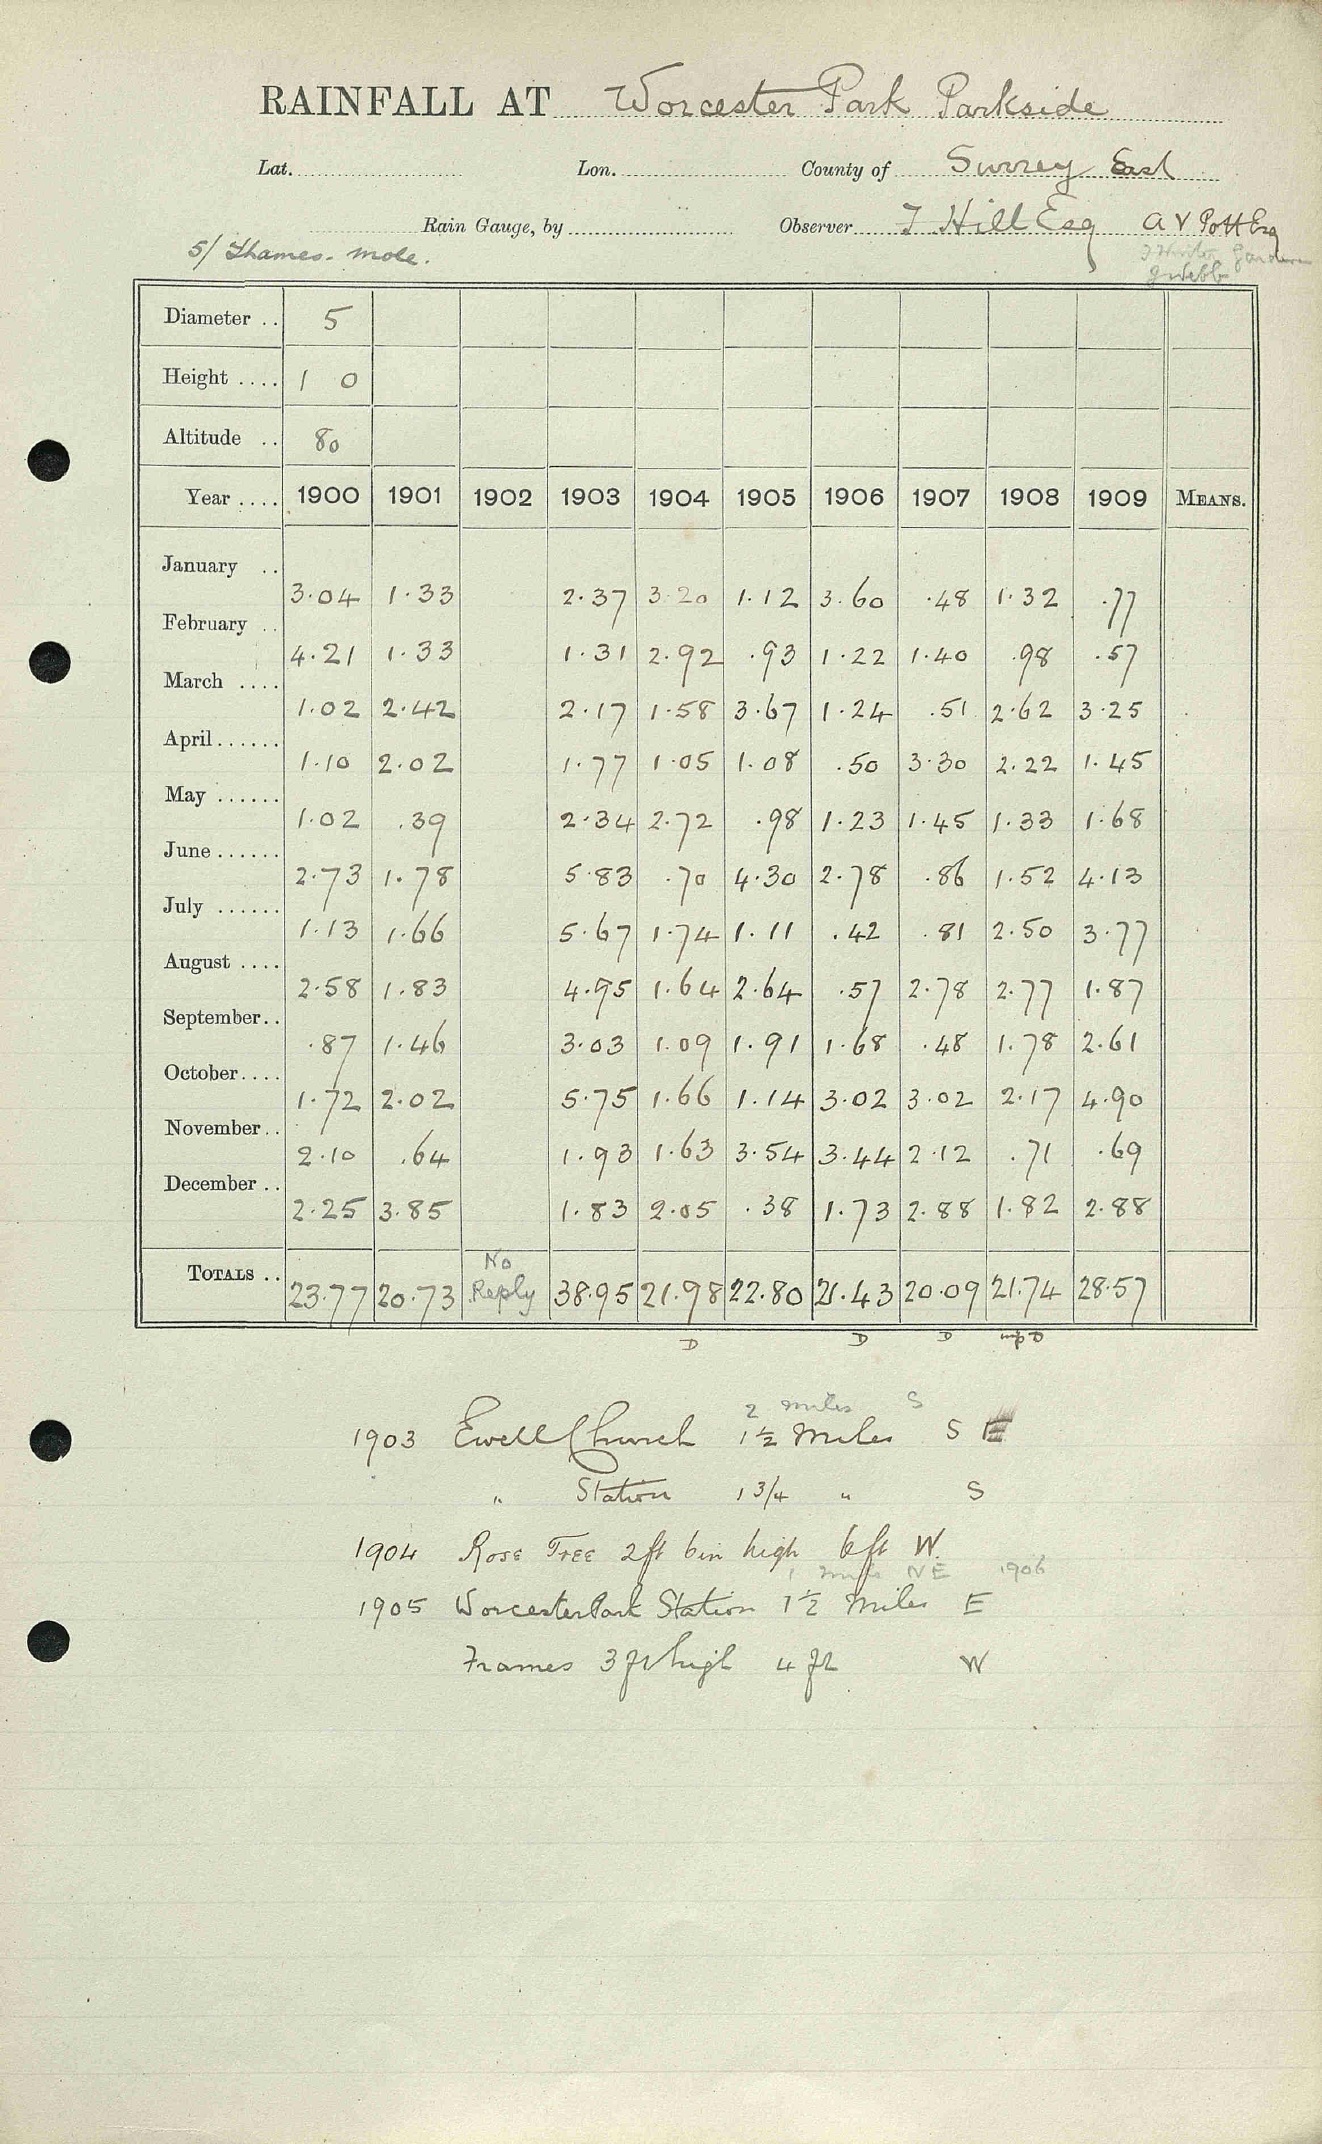 RAINFALL AT Worcester Park Parkside
Lat. Lon. County of Surrey East
Rain Gauge, by Observer T Hill Esq A V Pott Esq
5/ Thames. Mole. Gardener
J Webb
Diameter .. 5
Height .... 1 0
Altitude .. 80
Year .... 1900 1901 1902 1903 1904 1905 1906 1907 1908 1909 MEANS.
January .. 3.04 1.33 2.37 3.20 1.12 3.60 .48 1.32 .77
February .. 4.21 1.33 1.31 2.92 .93 1.22 1.40 .98 .57
March .... 1.02 2.42 2.17 1.58 3.67 1.24 .51 2.62 3.25
April...... 1.10 2.02 1.77 1.05 1.08 .50 3.30 2.22 1.45
May ...... 1.02 .39 2.34 2.72 .98 1.23 1.45 1.33 1.68
June...... 2.73 1.78 5.83 .70 4.30 2.78 .86 1.52 4.13
July ...... 1.13 1.66 5.67 1.74 1.11 .42 .81 2.50 3.77
August .... 2.58 1.83 4.95 1.64 2.64 .57 2.78 2.77 1.87
September.. .87 1.46 3.03 1.09 1.91 1.68 .48 1.78 2.61
October.... 1.72 2.02 5.75 1.66 1.14 3.02 3.02 2.17 4.90
November.. 2.10 .64 1.93 1.63 3.54 3.44 2.12 .71 .69
December .. 2.25 3.85 1.83 2.05 .38 1.73 2.88 1.82 2.88
TOTALS .. 23.77 20.73 No Reply 38.95 21.98 22.80 21.43 20.09 21.74 28.57
D D D D
2 miles S
1903 Ewell Church 1½ Miles S E
" Station 1 3/4 " S
1904 Rose Tree 2ft 6in high 6ft W.
1 mile NE 1906
1905 Worcester Park Station 1½ Miles E
Frames 3 ft high 4 ft W